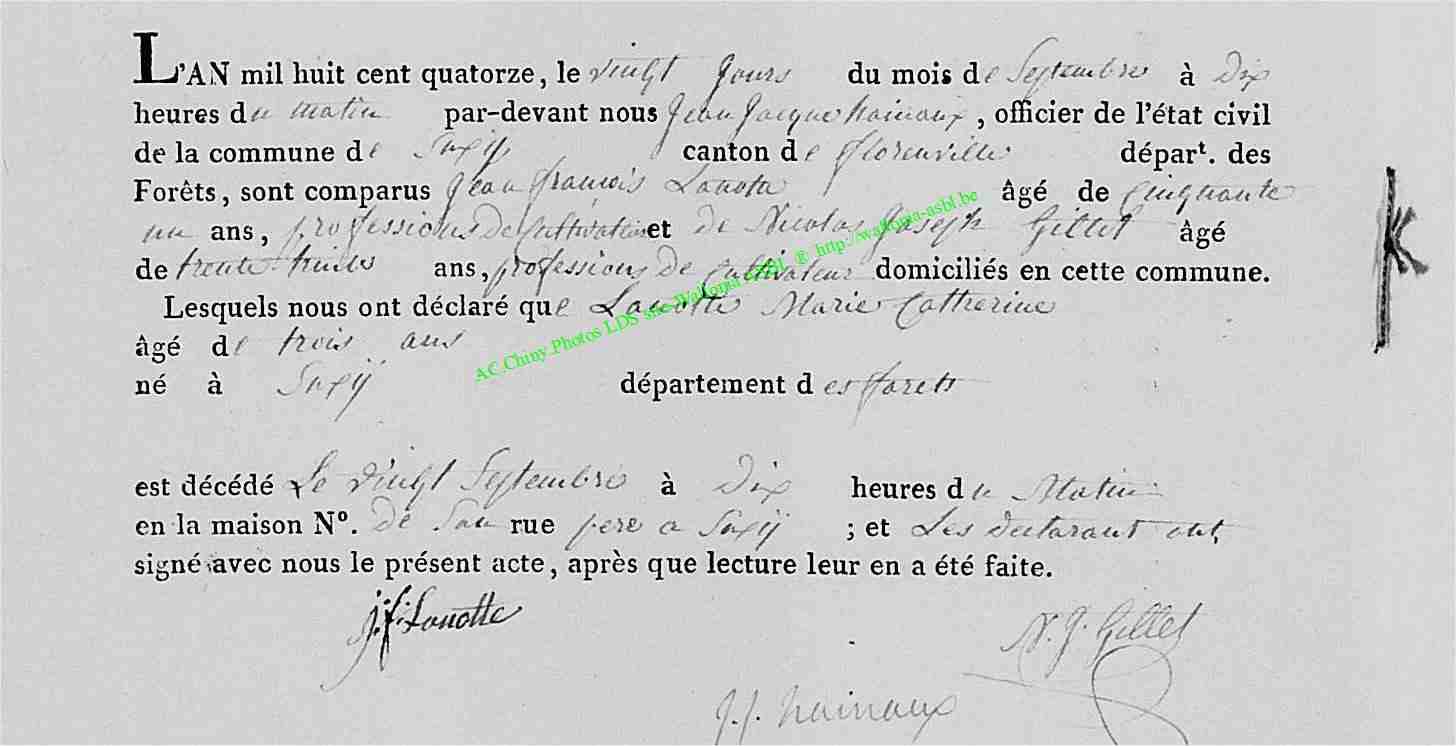 L'AN mil huit cent quatorze, le vingt jours du mois de Septembre à Dix
heures du matin par-devant nous Jean Jacque hainaux, officier de l'état civil
de la commune de Suxÿ canton de florenville départ. des
Forêts, sont comparus Jean françois Lanotte âgé de Cinquante
un ans, professions De Cultivateur et de Nicolas Joseph Gillet âgé
de trente ans, professions De Cultivateur domiciliés en cette commune.
Lesquels nous ont déclaré que Lanotte Marie Catherine
âgé de trois ans
né à Suxÿ département des forets
est décédé Le vingt Septembre à Dix heures du Matin
en la maison N°. de Son rue pere a Suxÿ ; et Les declarant ont
signé avec nous le présent acte, après que lecture leur en a été faite.
j.f. Lanotte
N. J. Gillet
J. J. hainaux
AC.Chiny.Photos LDS site Wallonia ASBL ® http://wallonia-asbl.be